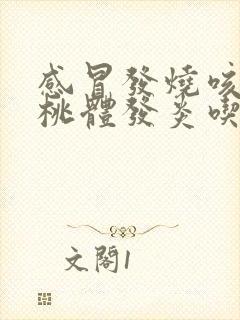 感冒發燒咳
桃體發炎喫
文閣1